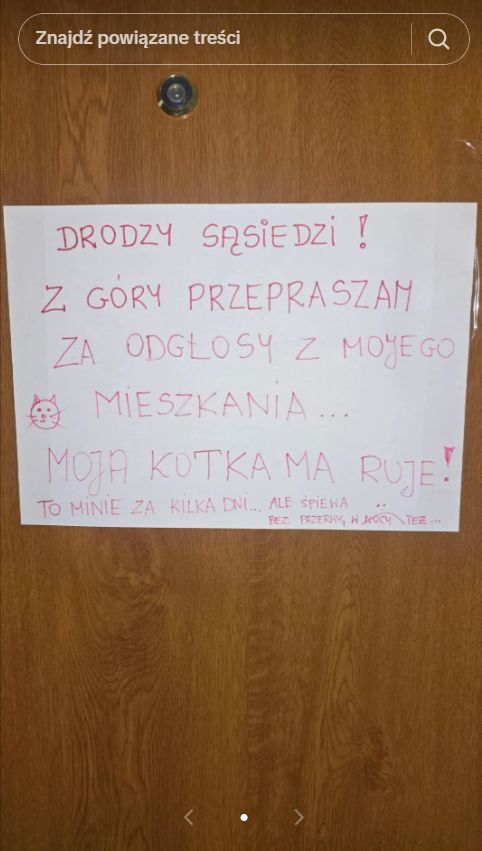 Znajdź powiązane treści
DRODZY SĄSIEDZI!
Z GÓRY PRZEPRASZAM
ZA ODGŁOSY Z MOJEGO
MIESZKANIA...
MOJA KOTKA MA RUJE!
TO MINIE ZA KILKA DNI... ALE ŚPIEWA
BEZ PRZERWY, W NOCY TEŻ...